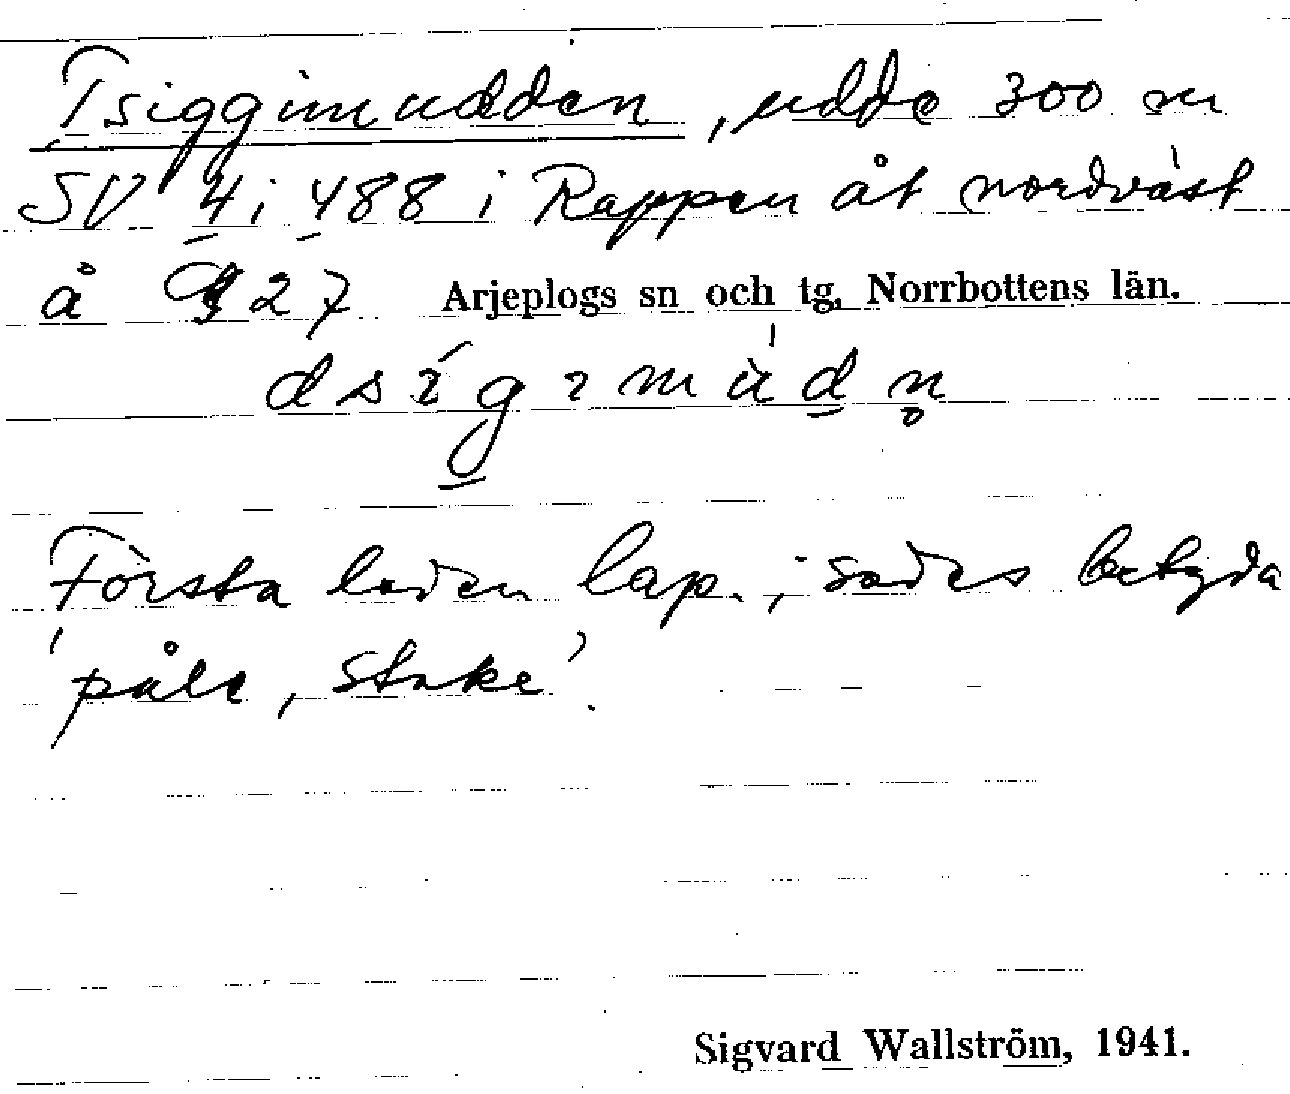 Tsiggimudden, udde 300 m
SV 4 i 488 i Rappen åt nordväst
å 927 Arjeplogs sn och tg, Norrbottens län.
dsígimùdn̥
Första leden lap.; sades betyda
'påle, stake'.
Sigvard Wallström, 1941.